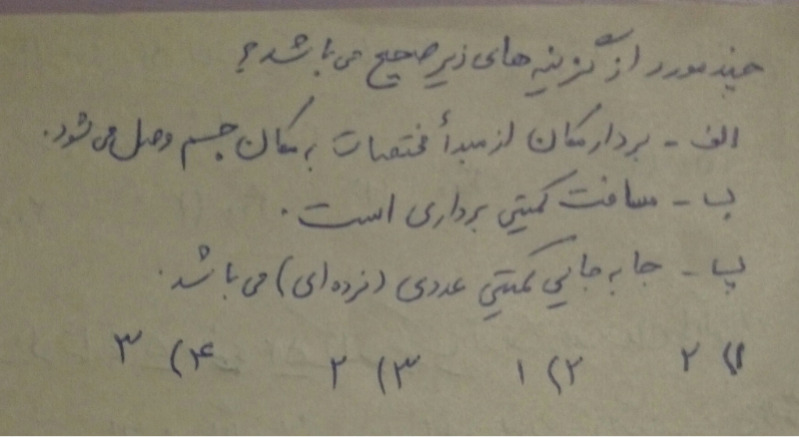 چند مورد از گزینه های زیر صحیح می باشد؟
الف - بردار مکان از مبدأ مختصات به مکان جسم وصل می شود.
ب - مسافت کمیتی برداری است.
پ - جا به جایی کمیتی عددی (نرده ای) می باشد.
۱) ۲ ۲) ۱ ۳) ۲ ۴) ۳